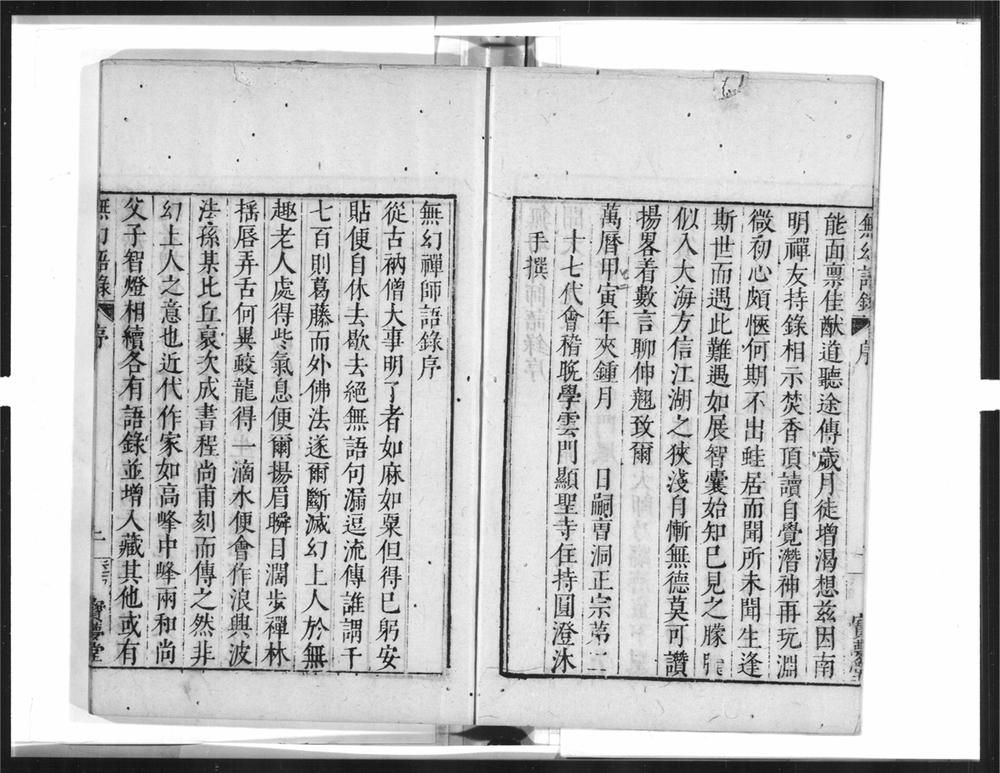 無幻語錄 序
能面禀佳猷道聽途傳歲月徒增渴想兹因南
明禪友持錄相示焚香頂讀自覺潛神再玩淵
微初心頗愜何期不出蛙居而聞所未聞生逢
斯世而遇此難遇如展智囊始知已見之朦
似入大海方信江湖之狹淺自慚無德莫可讚
揚畧着數言聊伸翹孜爾
萬曆甲寅年夾鍾月 日嗣曹洞正宗第二
十七代會稽晚學雲門顯聖寺住持圓澄沐
手撰
無幻禪師語錄序
從古衲僧大事明了者如麻如粟但得已躬安
貼便自休去歇去絕無語句漏逗流傳誰謂千
七百則葛藤而外佛法遂爾斷滅幻上人於無
趣老人處得些氣息便爾揚眉瞬目濶步禪林
揺唇弄舌何異蛟龍得一滴水便會作浪興波
法孫某比丘裒次成書程尚甫刻而傳之然非
幻上人之意也近代作家如高峰中峰兩和尚
父子智燈相續各有語錄並增入藏其他或有
無幻語錄 序 二